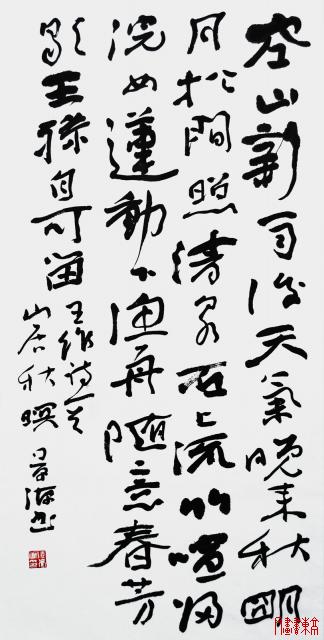 空山新雨後天氣晚来秋明
月松間照清泉石上流竹喧归
浣女蓮動下渔舟随意春芳
歇王孫自可留
王维诗一首
山居秋暝